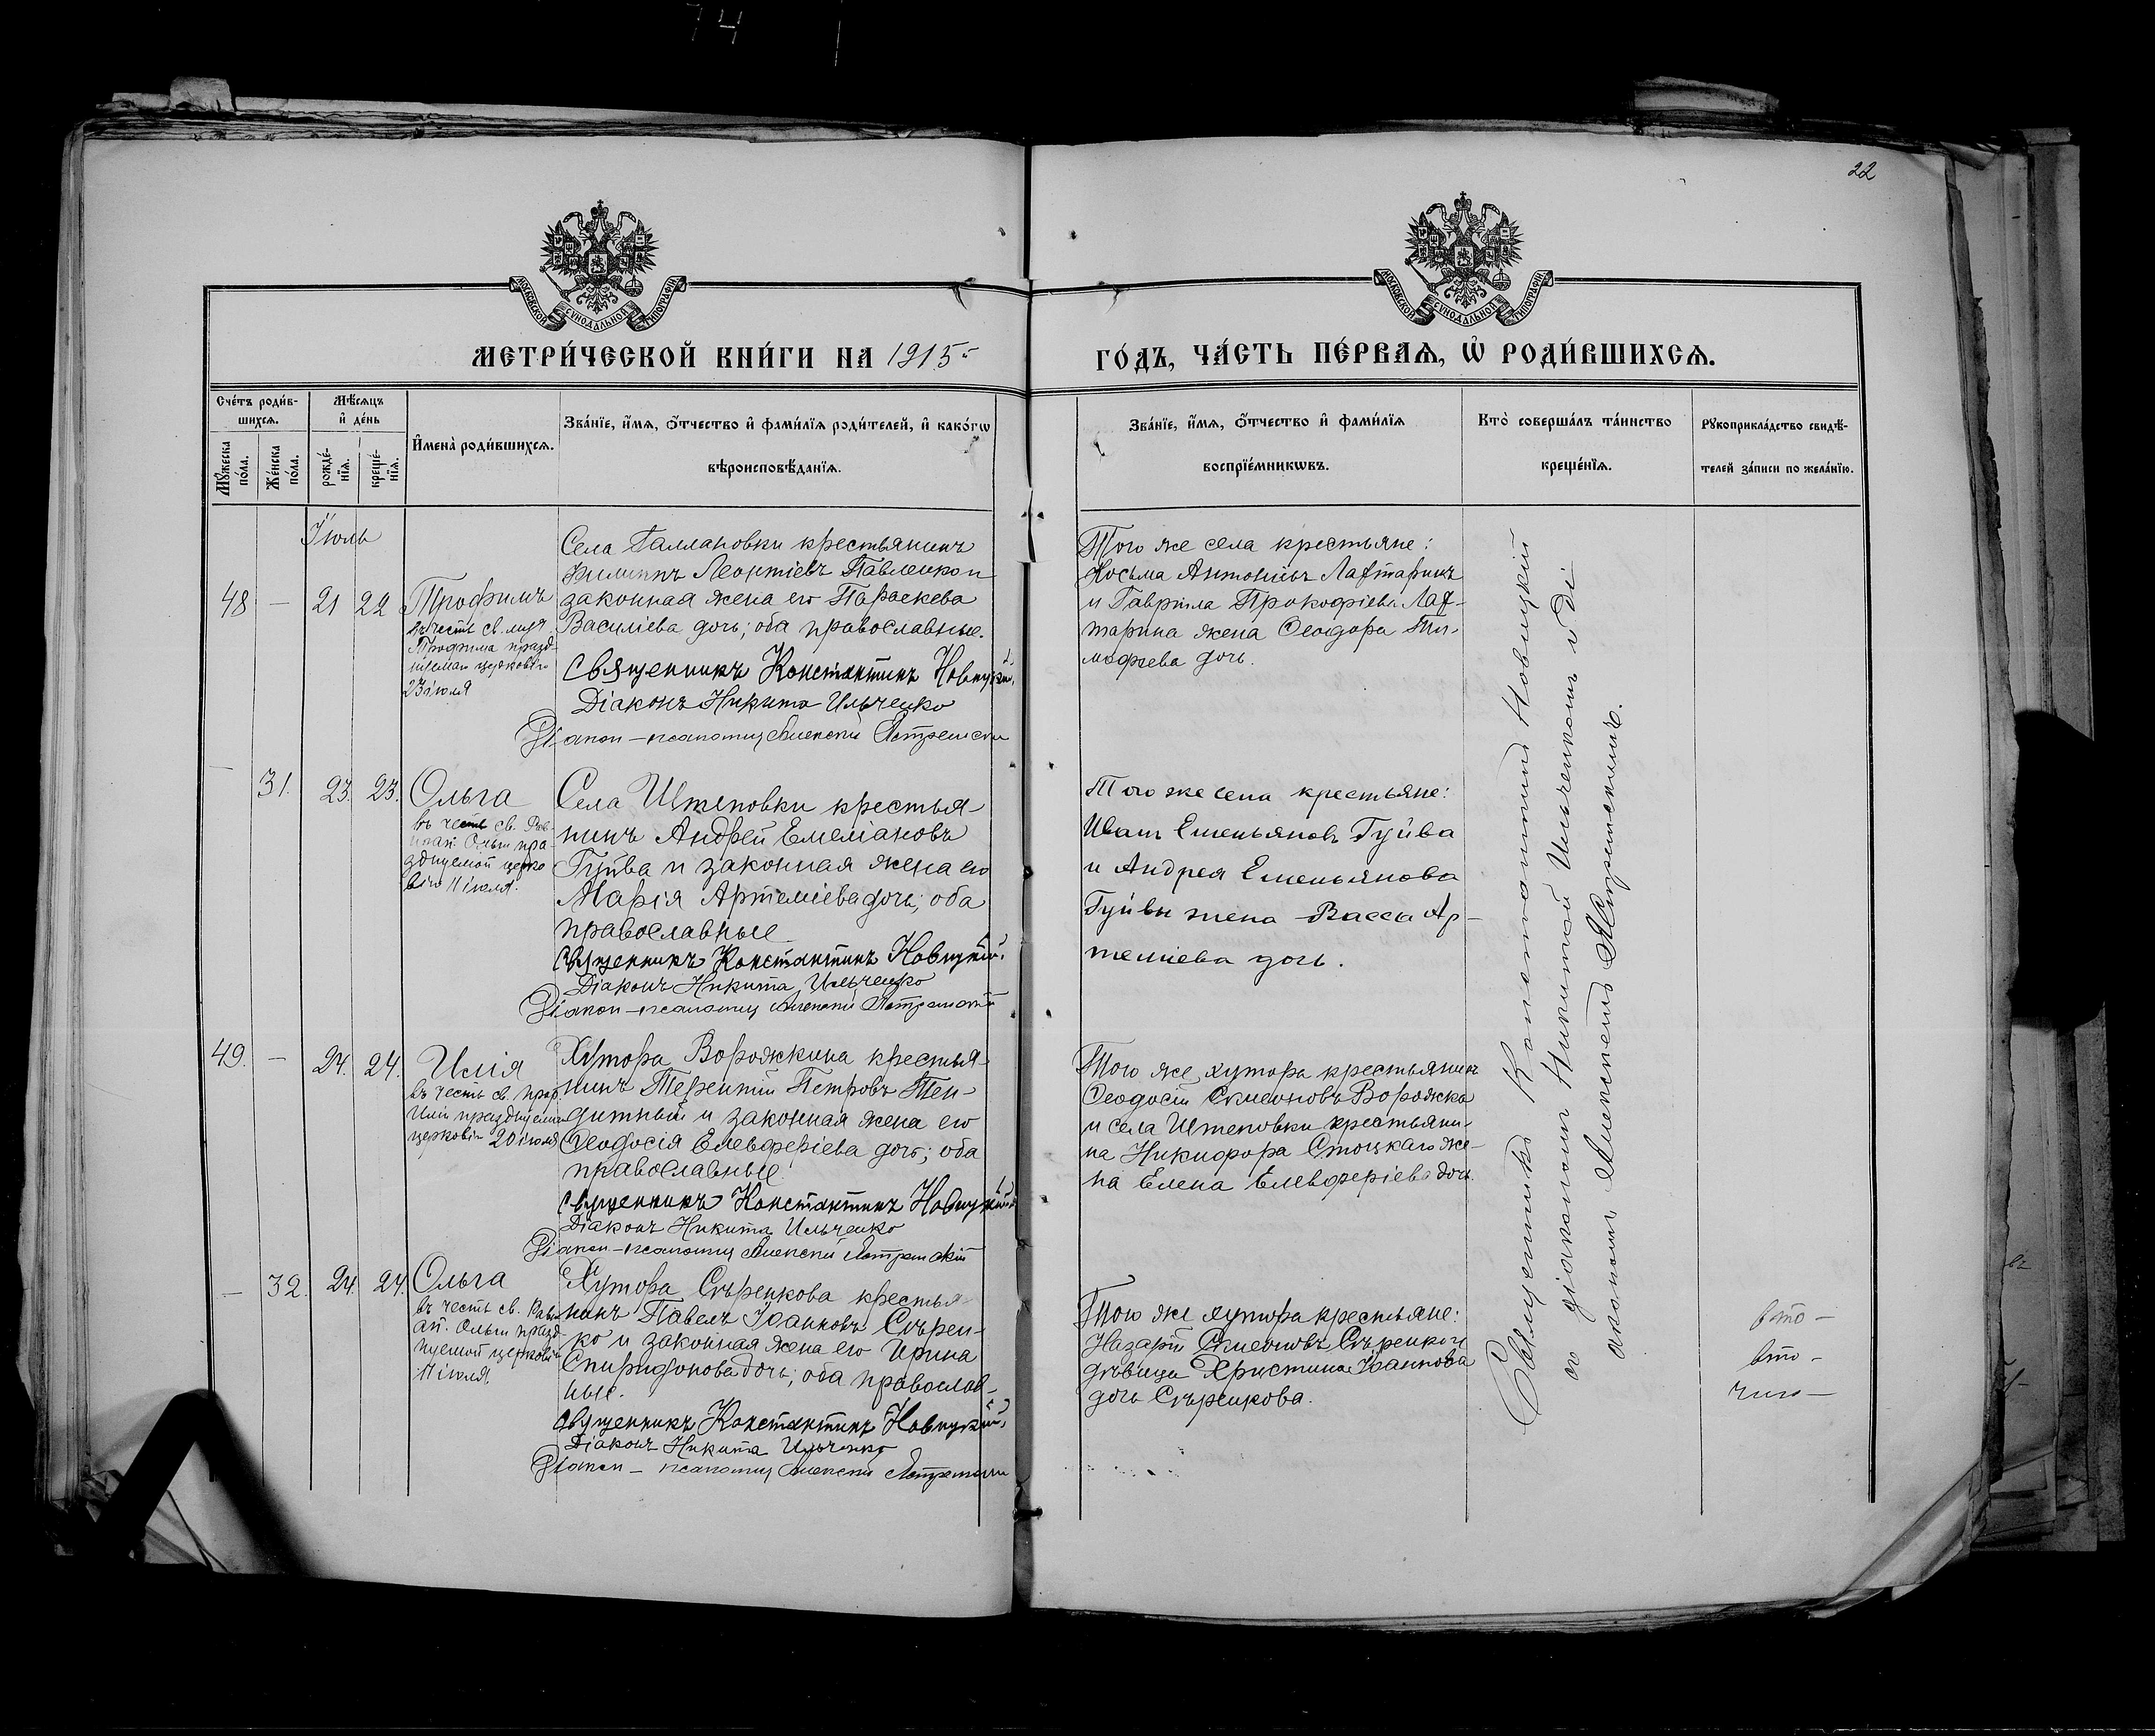 74
22
МОСКОВСКОЙ СѴНОДАЛЬНОЙ ТИПОГРАФІИ
МОСКОВСКОЙ СѴНОДАЛЬНОЙ ТИПОГРАФІИ
МЕТРИ́ЧЕСКОЙ КНИ́ГИ НА 1915
ГО́ДЪ, ЧА́СТЬ ПЕ́РВАЯ, Ѡ РОДИ́ВШИХСЯ.
Сче́тъ роди́в-
шихся.
Мꙋ́жеска
по́ла.
Же́нска
по́ла.
Мѣ́сяцъ
и҆ де́нь
рожде́-
нїя.
креще́-
нїя.
И҆мена̀ роди́вшихся.
Зва́нїе, и҆́мя, ѻ҆́тчество и҆ фами́лїя роди́телей, и҆ како́гѡ
вѣроисповѣ́данїя.
Зва́нїе, и҆́мя, ѻ҆́тчество и҆ фами́лїя
воспрїе́мникѡвъ.
Кто̀ соверша́лъ та́инство
креще́нїя.
Рꙋкоприкла́дство свидѣ́-
телей за́писи по жела́нїю.
Іюль
48 — 21 22 Трофимъ
въ честь св. муч.
Трофима празд-
церковію
23 іюля
Села крестьянинъ
Филиппъ Леонтіевъ Павленко и
законная жена его Параскева
Василіева дочь; оба православные.
Священникъ Константинъ Новицкій.
Діаконъ Никита Ильченко
Діакон-псаломщ Алексѣй
Того же села крестьяне:
Косьма Антоніевъ Лафтаринъ
и Гаврііла Прокофіева Лаф-
тарина жена Ѳеодора Ти-
мофеева дочь.
— 31. 23. 23. Ольга
въ честь св. Рав-
ноап. Ольги пра-
зднуемой церко
вію 11 іюля.
Села Штеповки крестья-
нинъ Андрей Емеліановъ
Гуйва и законная жена его
Марія Артеміева дочь; оба
православные
Священникъ Константинъ Новицкій.
Діаконъ Никита Ильченко
Діакон-псаломщ Алексѣй
Того же села крестьяне:
Иван Емельянов Гуйва
и Андрея Емельянова
Гуйвы жена Васса Ар-
темиева дочь.
49. — 24. 24. Илія
въ честь св. прор.
Иліи празднуемаго
церковію 20 іюля
Хутора Ворожкина крестья-
нинъ Терентій Петровъ Тен-
дитный и законная жена его
Ѳеодосія Елевферіева дочь; оба
православные.
Священникъ Константинъ Новицкій
Діаконъ Никита Ильченко
Діакон-псаломщ Алексѣй
Того же хутора крестьянинъ
Ѳеодосій Симеоновъ Ворожка
и села Штеповки крестьяни-
на Никифора Стоцкаго же-
на Елена Елевферіева дочь.
— 32. 24. 24. Ольга
въ честь св. Равн
ап. Ольги празд-
нуемой церковію
11 іюля.
Хутора Сѣренкова крестья-
нинъ Павелъ Іоанновъ Сѣрен-
ко и законная жена его Ирина
Спиридонова дочь; оба православ-
ные.
Священникъ Константинъ Новицкій.
Діаконъ Никита Ильченко
Діакон - псаломщ Алексѣй
Того же хутора крестьяне:
Назарій Симеоновъ Сѣренко и
дѣвица Христина Іоаннова
дочь Сѣренкова.
Священникъ Константинъ Новицкій
со діакономъ Никитой Ильченкомъ и Ді
акономъ Алексѣемъ